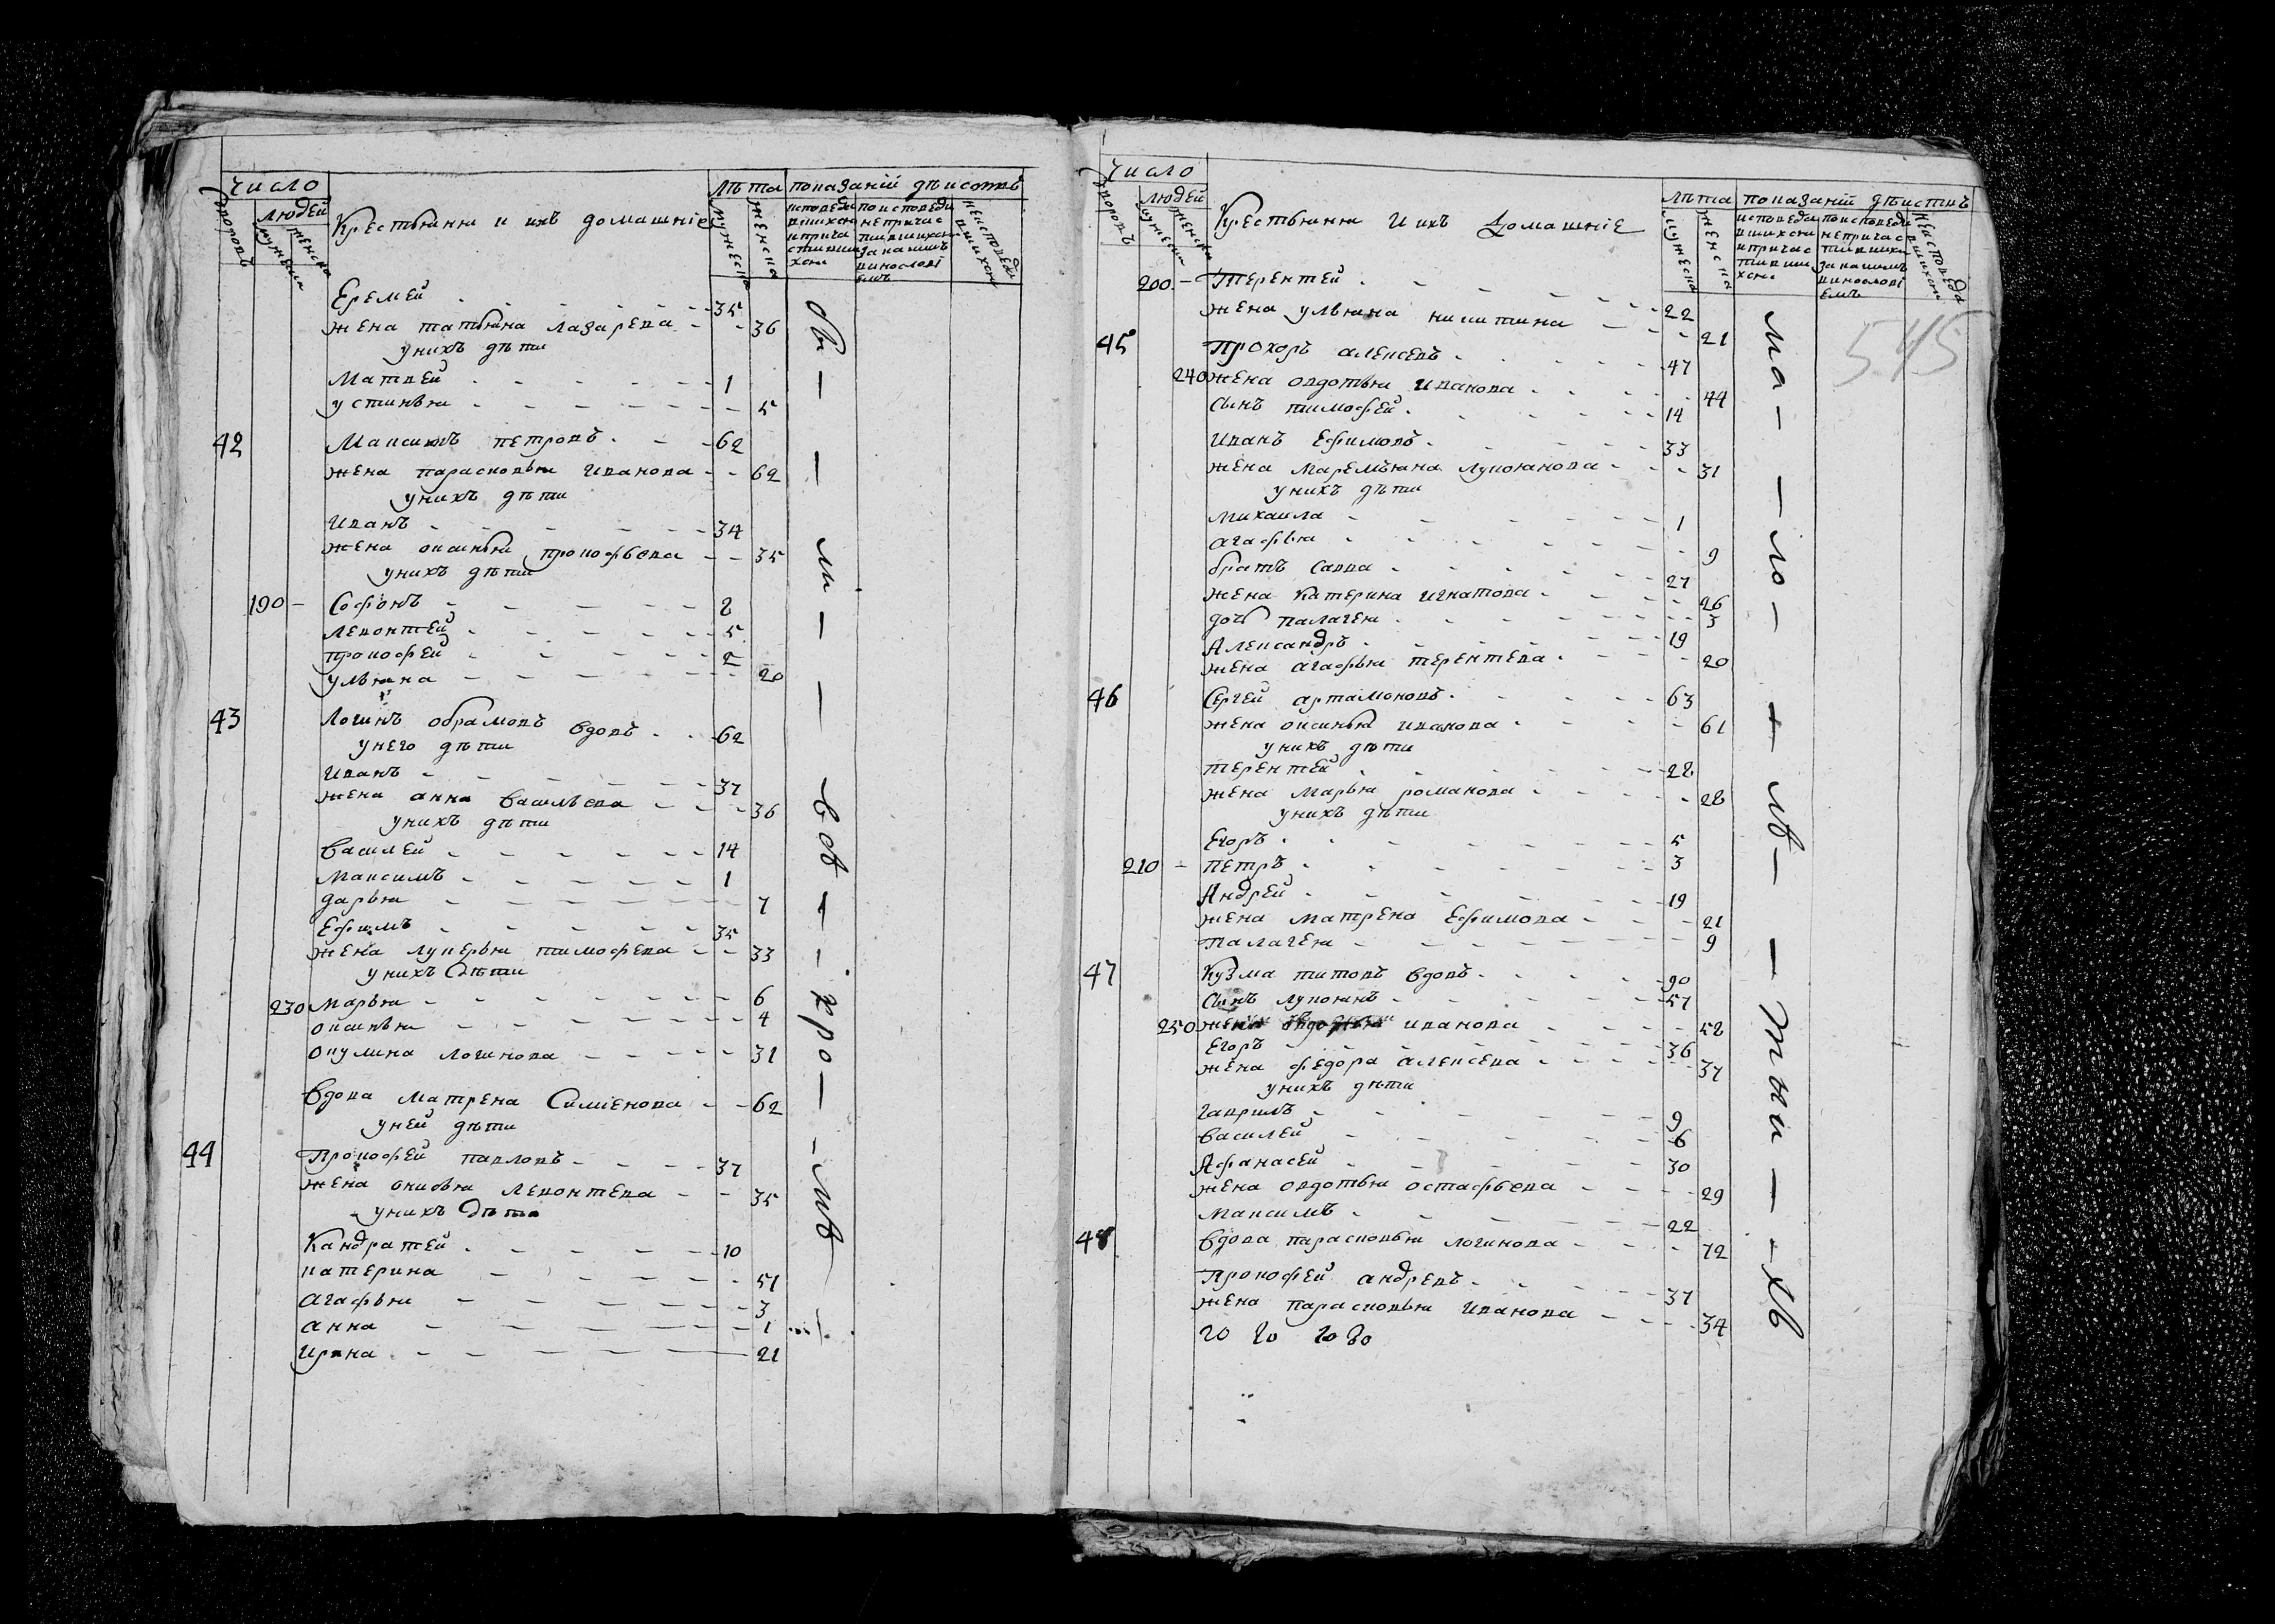 Число
Лѣта показаній дѣйствъ
дворовъ
людей
мужеска
женска
Крестьянѣ и ихъ домашніе
мужеска
женска
Еремей 35
жена татьяна лазарева 36
у нихъ дѣти
Матвей 1
устинья 5
42 Максимъ петровъ 62
жена парасковья Иванова 62
у нихъ дѣти
Иванъ 34
жена оксинья прокофьева 35
у нихъ дѣти
190 Софонъ 2
левонтей 5
прокофей 2
ульяна 20
43 Логинъ обрамовъ вдовъ 62
у него дѣти
Иванъ 37
жена анна Васильева 36
у нихъ дѣти
Василей 14
Максимъ 1
дарья 7
Ефимъ 35
жена лукерья тимофева 33
у нихъ дѣти
230 марья 6
оксинья 4
окулина логинова 31
вдова матрена Симіенова 62
у ней дѣти
44 Прокофей павловъ 37
жена онисья левонтева 35
у нихъ дѣти
Кандратей 10
катерина 51
агафья 3
анна 1
Ирина 21
Число
Лѣта показаній дѣиствъ
дворовъ
людей
мужеска
женска
Крестьянѣ и ихъ домашніе
мужеска
женска
545
200 Терентей 22
жена ульяна никитина 21
45 Прохоръ алексевъ 47
240 жена овдотья Иванова 44
сынъ тимофей 14
Иванъ Ефимовъ 33
жена Маремьяна лукоянова 31
у нихъ дѣти
михаила 1
агафья 9
братъ савва 27
жена Катерина игнатова 26
дочь палагея 3
Александръ 19
жена агафья терентева 20
46 Сергей артамоновъ 63
жена оксинья иванова 61
у нихъ дѣти
терентей 22
жена Марья романова 28
у нихъ дѣти
Егоръ 5
210 петръ 3
Андрей 19
жена матрена Ефимова 21
палагея 9
47 Кузма титовъ вдовъ 90
Сынъ лукоянъ 57
250 жена иванова 58
Егоръ 36
жена федора алексева 37
у нихъ дѣти
гаврилъ 9
Василей 6
Афанасей 30
жена овдотья остафьева 29
максимъ 22
48 вдова парасковья логинова 72
Прокофей андревъ 37
жена парасковья Иванова 34